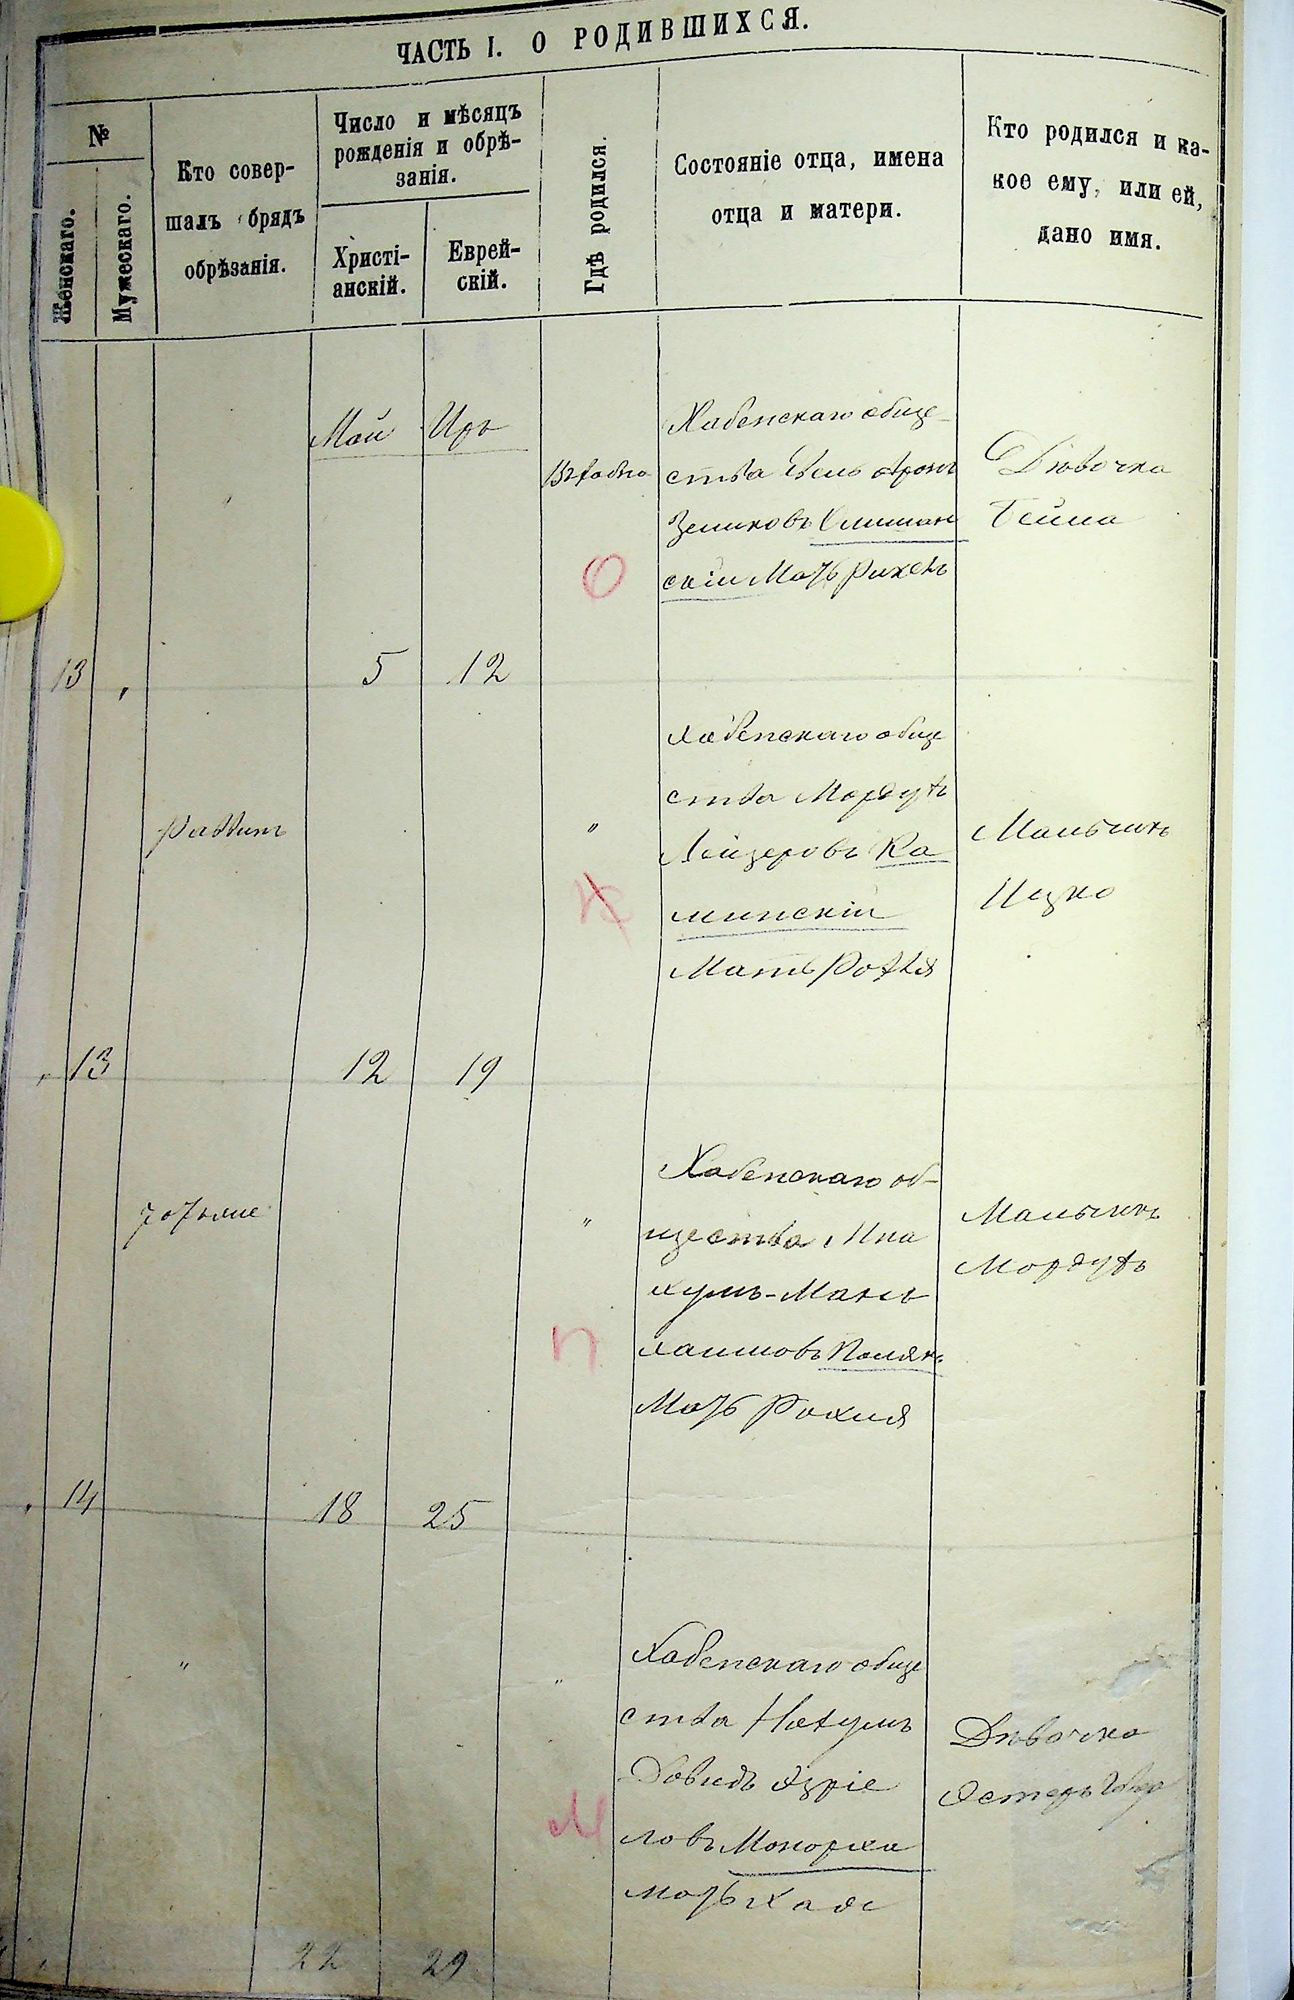 ЧАСТЬ I. О РОДИВШИХСЯ.
№
Женскаго.
Мужескаго.
Кто совер-
шалъ обрядъ
обрѣзанія.
Число и мѣсяцъ
рожденія и обрѣ-
занія.
Христі-
анскій.
Еврей-
скій.
Гдѣ родился.
Состояніе отца, имена
отца и матери.
Кто родился и ка-
кое ему, или ей,
дано имя.
Май
Иръ
Хабенскаго обще-
ства
скій Мать
Дѣвочка
Бейла
О
13
5
12
Хабенскаго обще
ства Мордухъ
Лейзеровъ Ка
минскій
Мать
Раввинъ
"
К
Мальчикъ
Ицко
13
12
19
Хабенскаго об-
щества Мна
хумъ-Мань
Хаимовъ Полякъ
Мать Рохля
"
П
Мальчикъ
Мордухъ
14
18
25
Хабенскаго обще
ства Нахумъ
Довидъ Азріе
ловъ
мать Хая
"
"
М
Дѣвочка
Эстеръ
22
29